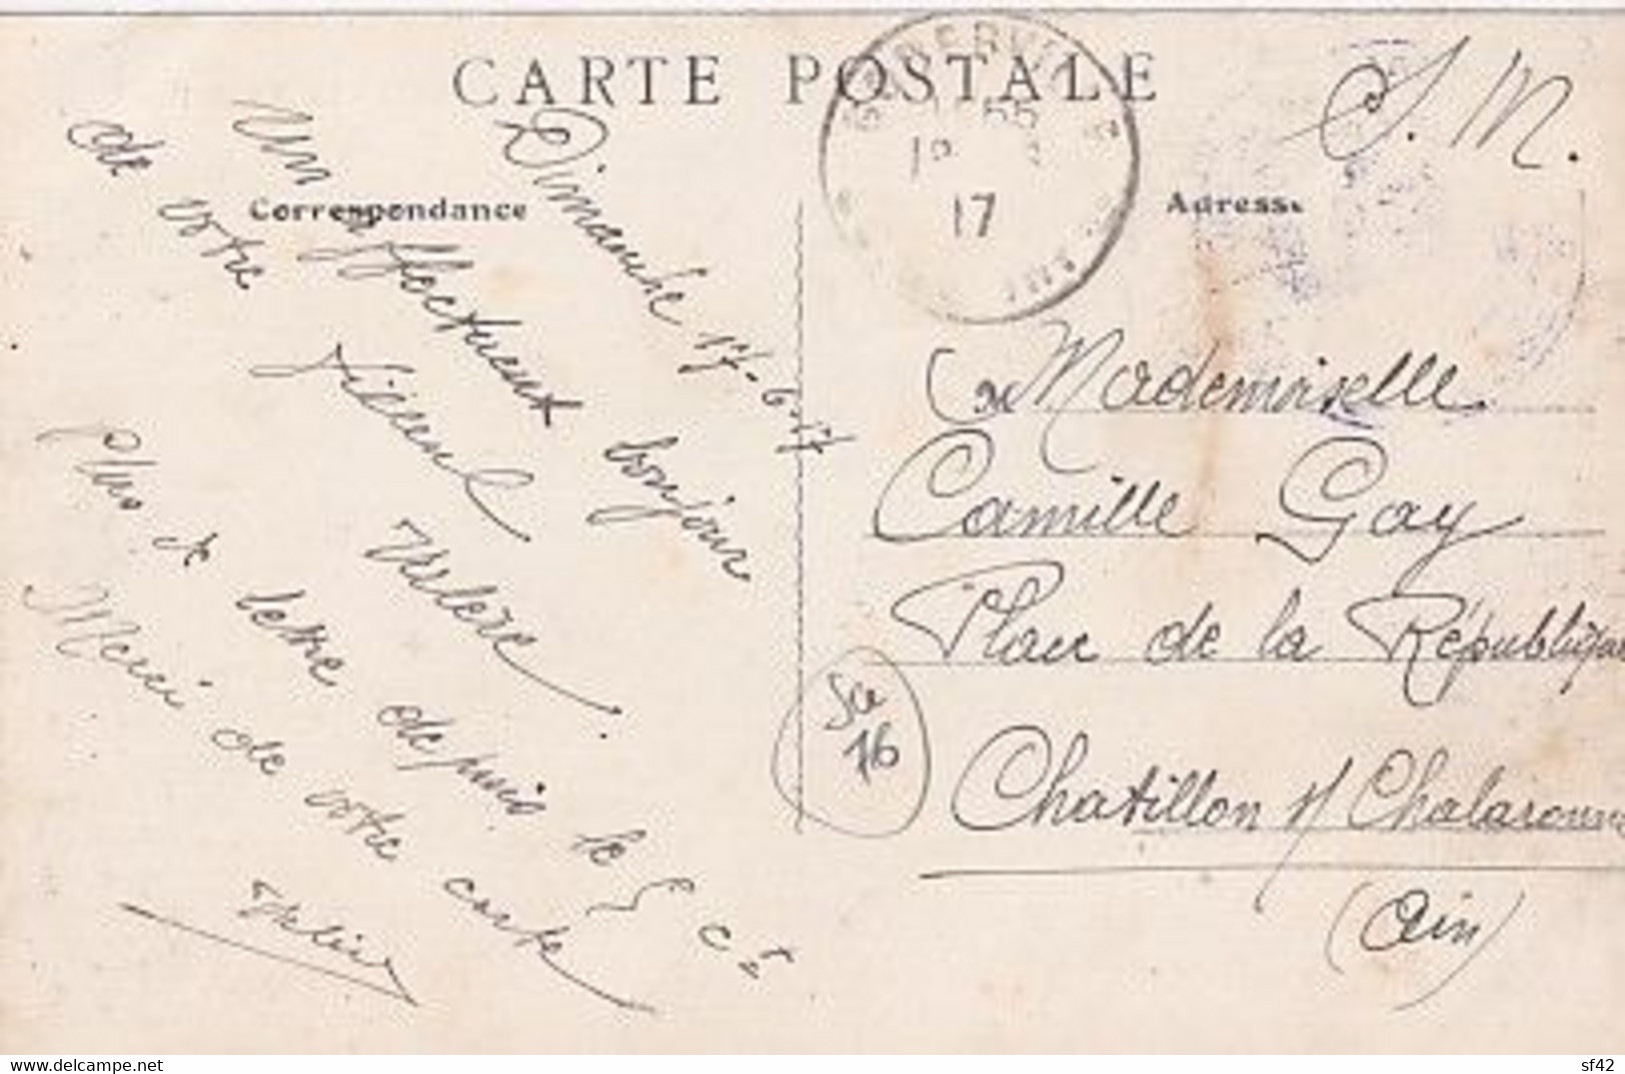 CARTE POSTALE
S. M.
Correspondance
Adresse
17
Dimanche 17-6-17
Un affectueux bonjour
de votre
Valère.
Plus de lettre depuis le 5 ct
Merci de votre carte
Valère
Mademoiselle
Camille Gay
Place de la République
Chatillon s/ Chalaronne
(Ain)
Sce
16
delcampe.net
sf42